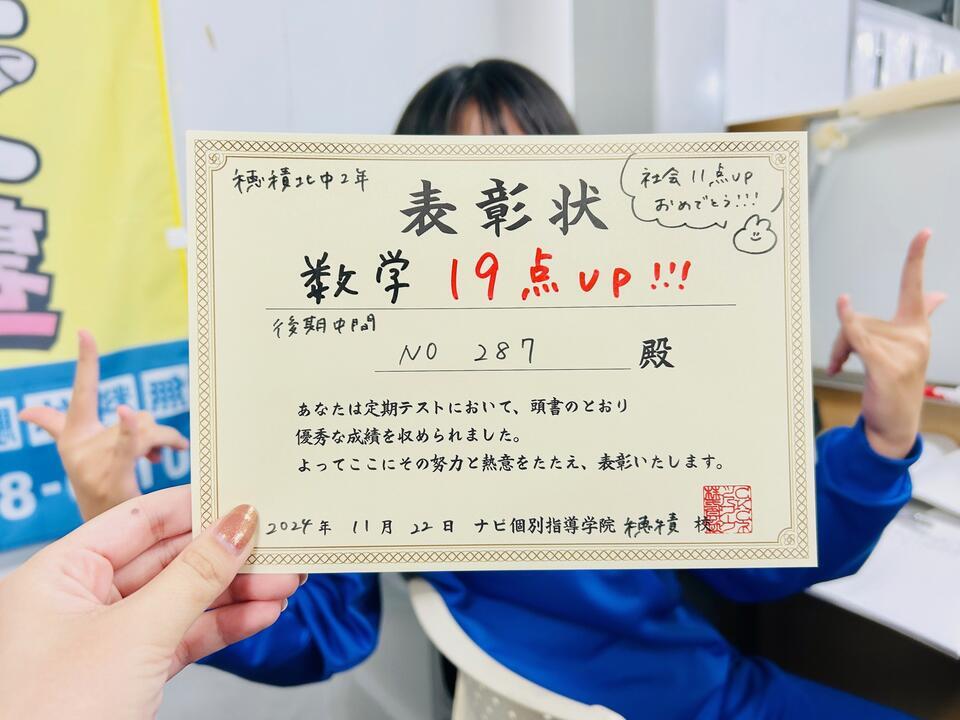 穂積北中2年
表彰状
社会 11点up
おめでとう!!!
数学 19点up!!!
後期中間
NO 287 殿
あなたは定期テストにおいて、頭書のとおり
優秀な成績を収められました。
よってここにその努力と熱意をたたえ、表彰いたします。
2024年 11月 22日 ナビ個別指導学院 穂積 校